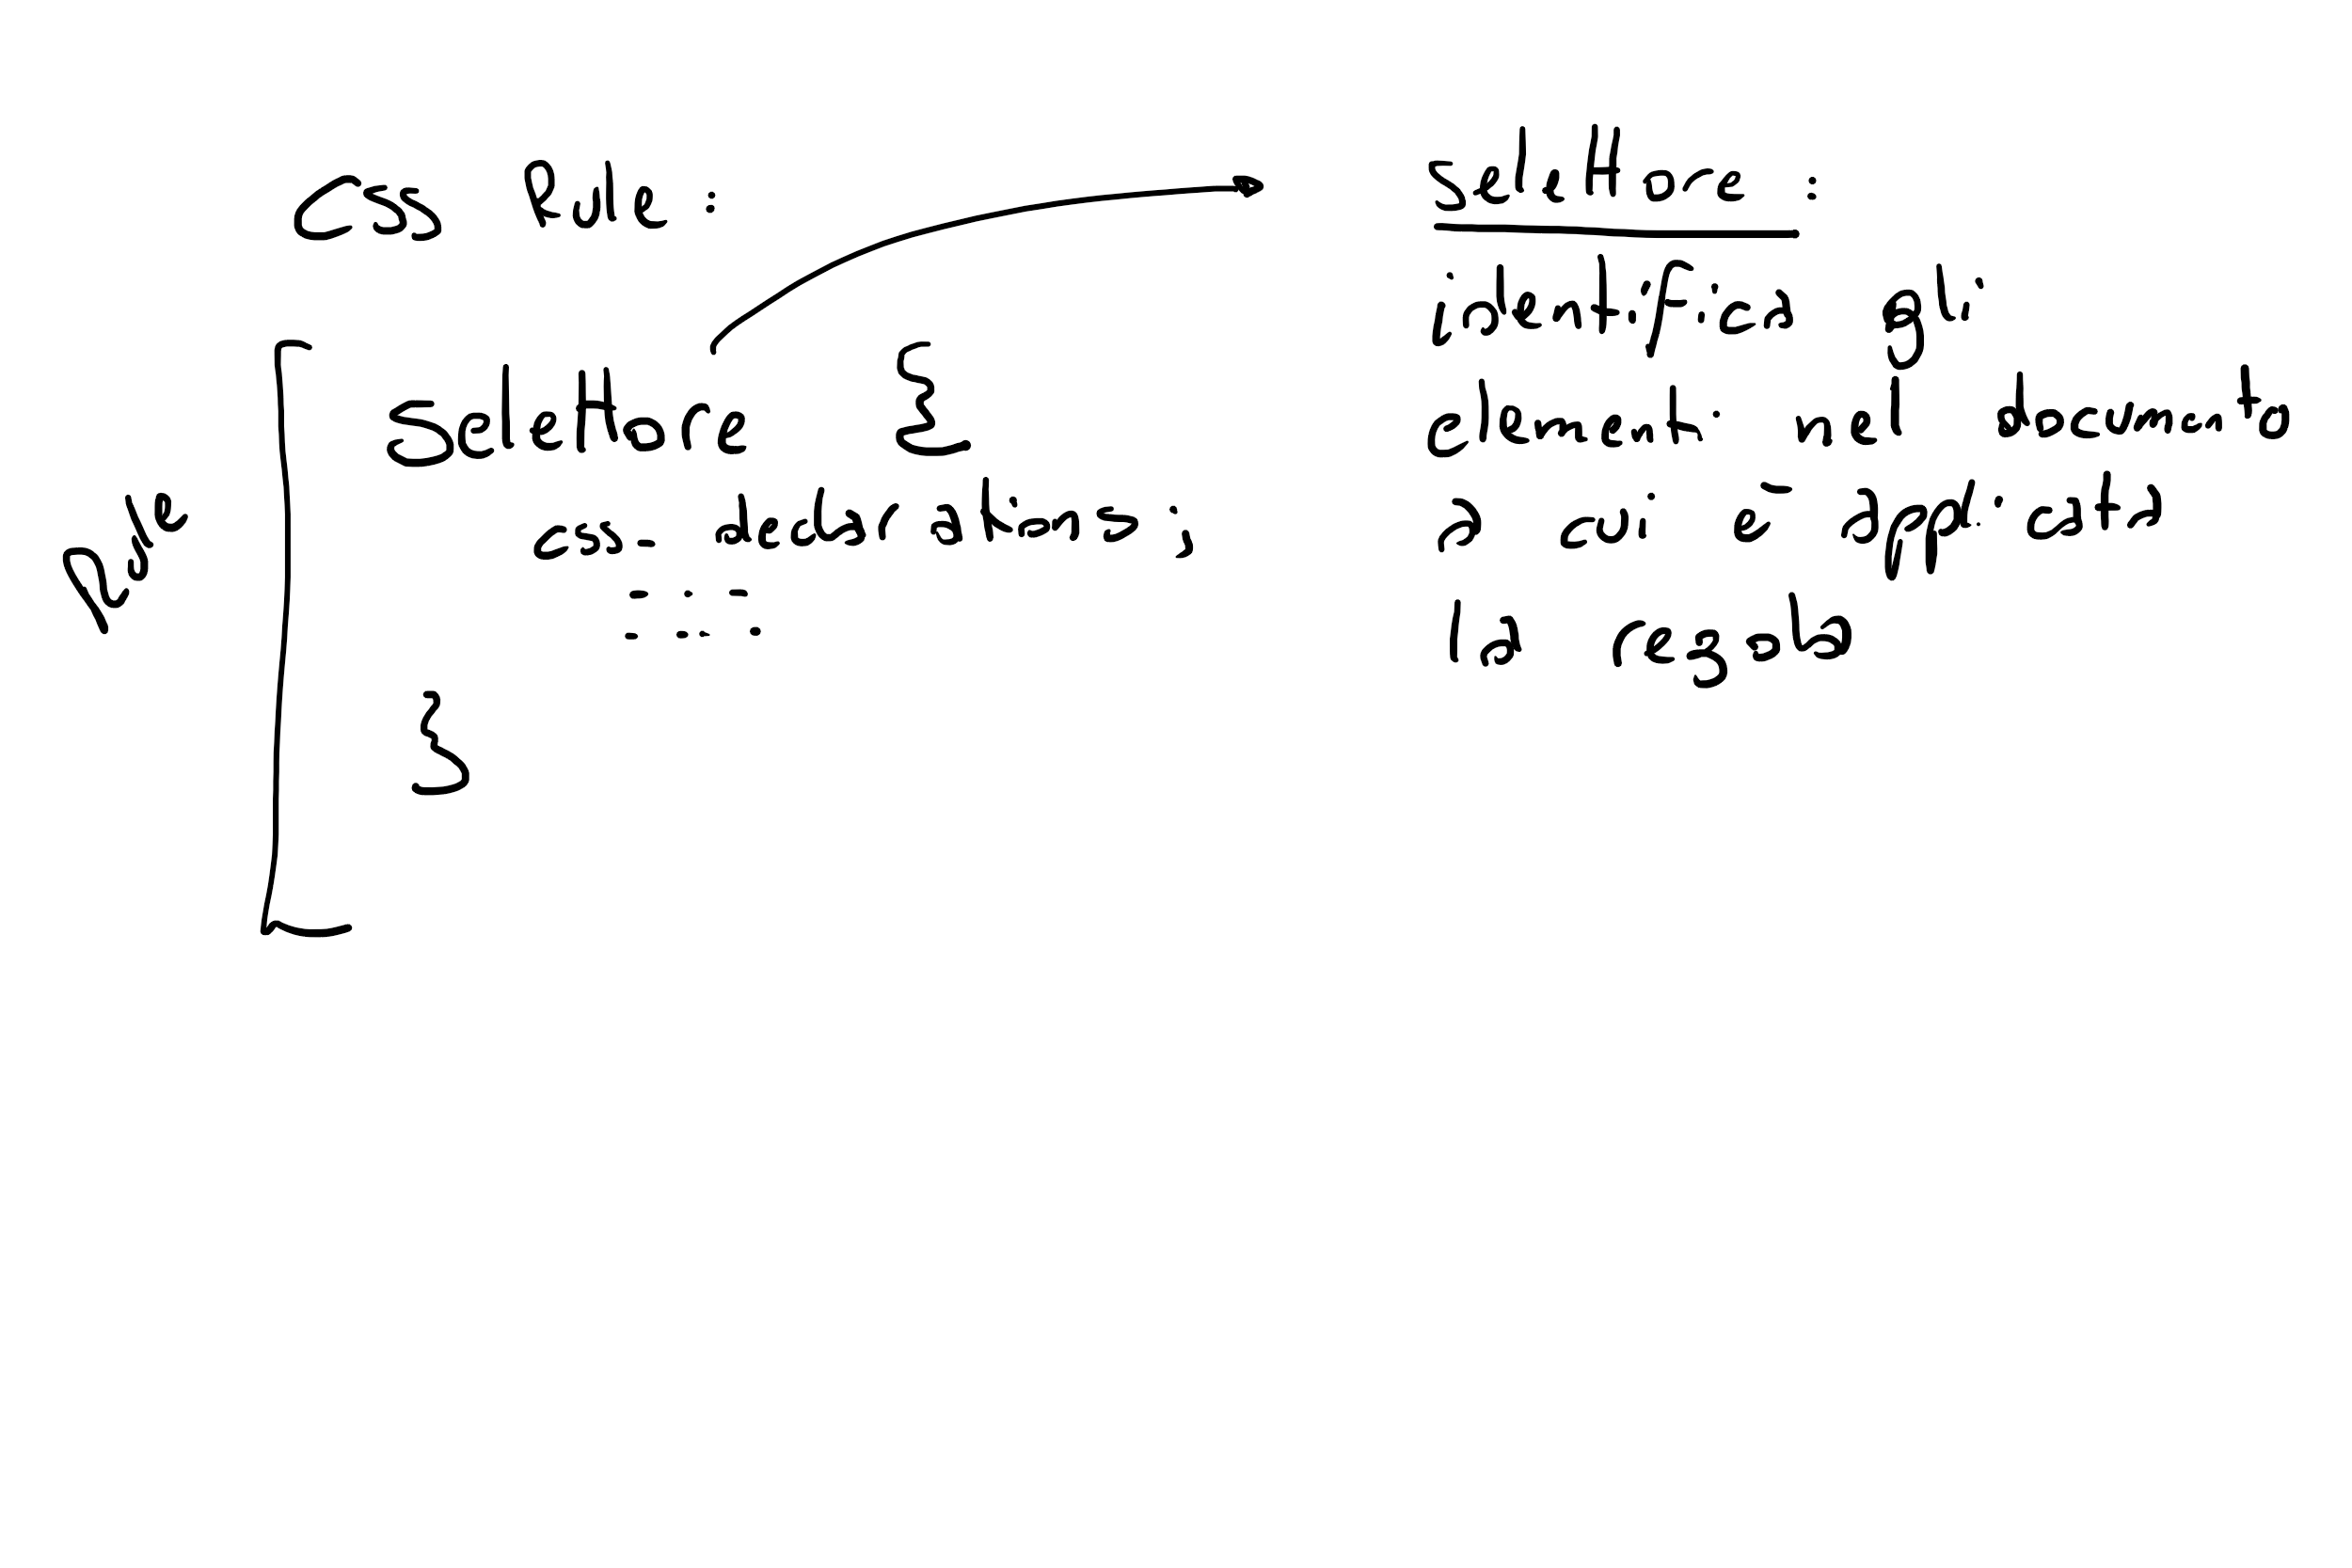 CSS Rule :
Rule
selettore {
css-declarations ;
....
....
}
selettore :
identifica gli
elementi nel documento
a cui è applicata
la regola